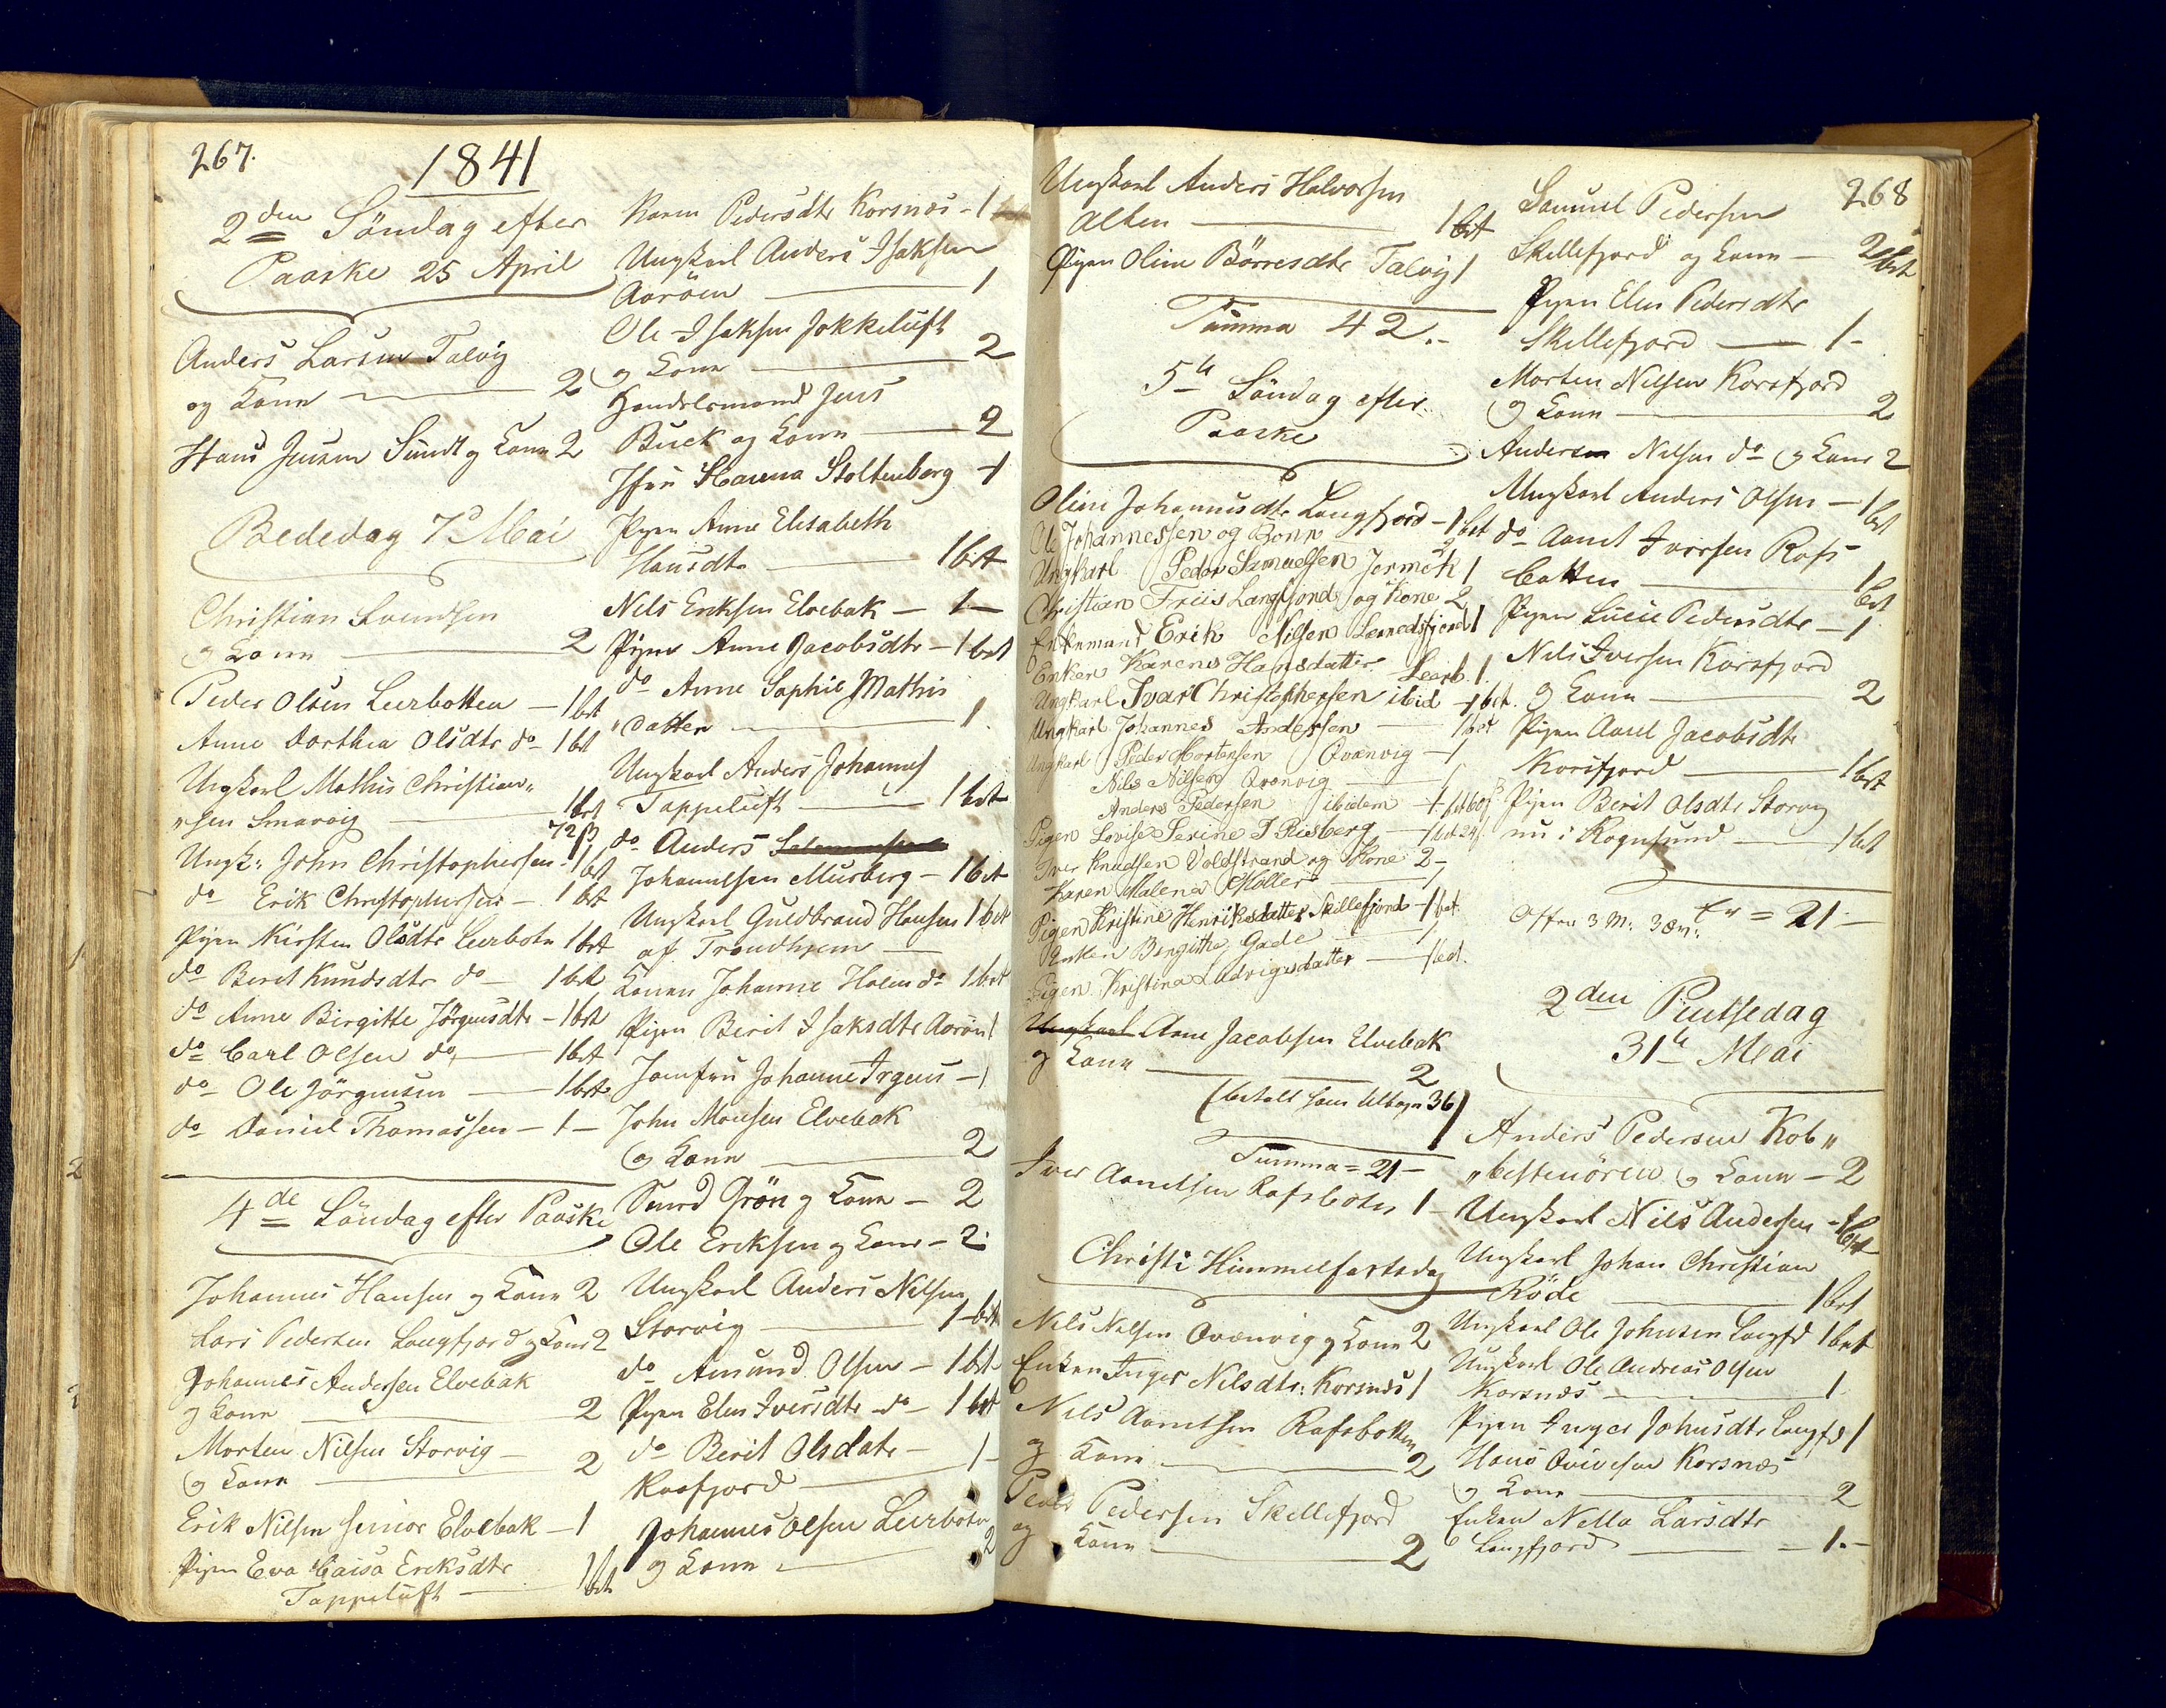 267.
1841
2den Söndag efter
Paaske 25 April
Anders Larsen Talvig
og Kone 2
Hans Jensen Sundt og Kone 2
Bededag 7d Mai
Christian Svendsen
og Kone 2
Peder Olsen Leerbotten 1 bet
Anne Dorthea Olsdtr do 1 bet
Ungkarl Mathis Christian„
„sen Smavig 1 bet
72 β
Ungk: John Christophersen 1 bet
do Erik Christophersen 1 bet
Pigen Kirsten Olsdtr Leerbotn 1 bet
do Berit Knudsdtr do 1 bet
do Anne Birgitte Jörgensdtr 1 bet
do Carl Olsen do 1 bet
do Ole Jörgensen 1 bet
do Daniel Thomassen 1
4de Söndag efter Paaske
Johannes Hansen og Kone 2
Lars Pedersen Langfjord og Kone 2
Johannes Andersen Elvebak
og Kone 2
Morten Nilsen Storvig
og Kone 2
Erik Nilsen senior Elvebak 1
Pigen Eva Caisa Ericksdtr
Tappeluft 1 bet
Karen Pedersdtr Korsnæs 1
Ungkarl Anders Isaksen
Aaröen 1
Ole Isaksen Jokkeluft
og Kone 2
Handelsmand Jens
Buck og Kone 2
Jfru Hanna Stoltenberg 1
Pigen Anne Elisabeth
Hansdtr 1 bet
Nils Eriksen Elvebak 1
Pigen Anne Jacobsdtr 1 bet
do Anne Sophie Mathis
„datter 1
Ungkarl Anders Johannes
Tappeluft 1 bet
do Anders
Johannesen Murberg 1 bet
Ungkarl Guldbrand Hansen 1 bet
af Trondhjem
Konen Johanne Holm do 1 bet
Pigen Berit Isaksdtr Aaröen 1
Jomfru Johanne Irgens 1
John Monsen Elvebak
og Kone 2
Svend Grön og Kone 2
Ole Ericksen og Kone 2
Ungkarl Anders Nilsen
Storvig 1 bet
do Amund Olsen 1 bet
Pigen Elen Iversdtr do 1 bet
do Berit Olsdatr
Kaafjord 1
Johannes Olsen Leerbotn
og Kone 2
268
Ungkarl Anders Halvorsen
Alten 1 bet
Pigen Oline Börresdtr Talvig 1
Summa 42.
5te Söndag efter
Paaske
Oline Johannesdtr Langfjord 1 bet
Ole Johannessen og Kone 2
Ungkarl Peder Samuelsen Jermek 1
Christian Friis Langfjord og Kone 2
Enkemand Erik Nilsen 1
Enken Karen Hansdatter Leerb. 1
Ungkarl Ivar Christophersen ibid 1 bet.
Ungkarl Johannes Andersen 1 bet
Ungkarl Peder Mortensen Qvænvig 1
Nils Nilsen Qvænvig 1
Anders Pedersen ibidem 1
Pigen Lovise Serine J Risberg 1 bet 24
Iver Knudsen Voldstrand og Kone 2
Karen Malena Möller 1
Pigen Kristine Henriksdatter Skillefjord 1 bet
Enken Birgitha Gade 1
Pigen Kristina Ludvigsdatter 1 bet.
Ungkarl Arne Jacobsen Elvebak
og Kone 2
(betalt 36)
Summa = 21
Iver Aamtsen Rafsbotn 1
Christi Himmelfartsdag
Nils Nilsen Qvænvig og Kone 2
Enken Inger Nilsdtr: Korsnæs 1
Nils Aamtsen Rafsbotten
og Kone 2
Peder Pedersen Skillefjord
og Kone 2
Samuel Pedersen
Skillefjord og Kone 2 bet
Pigen Elen Pedersdtr
Skillefjord 1
Morten Nilsen Korsfjord
og Kone 2
Andersen Nilsen do og Kone 2
Ungkarl Anders Olsen 1 bet
do Aamt Iversen Rafs
botten 1 bet
Pigen Lucie Pedersdtr 1
Nils Iversen Korsfjord
og Kone 2
Pigen Aael Jacobsdtr
Korsfjord 1 bet
Pigen Berit Olsdtr Storvig
nu i Rognsund 1 bet
Offer 3 M: = 21
2den Pintsedag
31te Mai
Anders Pedersen Kob„
„bestenören og Kone 2
Ungkarl Nils Andersen 1 bet
Ungkarl Johan Christian
Röde 1 bet
Ungkarl Ole Johnsen Langfd 1 bet
Ungkarl Ole Andreas Olsen
Korsnæs 1
Pigen Inger Johnsdtr Langfd 1
Hans Korsnæs
og Kone 2
Enken Nella Larsdtr
Langfjord 1